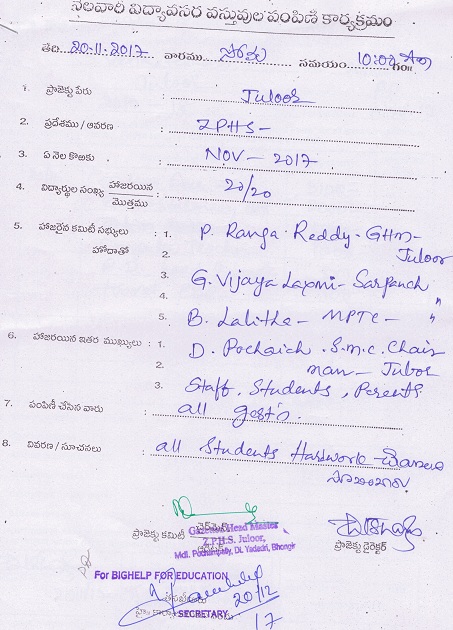 నెలవారి విద్యావసర వస్తువుల పంపిణి కార్యక్రమం
తేది 20-11-2017 వారము సోమ సమయం 10:00
1. ప్రాజెక్టు పేరు : Juloor
2. ప్రదేశము / ఆవరణ : ZPHS -
3. ఏ నెల కొఱకు : NOV - 2017
4. విద్యార్థుల సంఖ్య హాజరయిన / మొత్తము : 20/20
5. హాజరైన కమిటీ సభ్యులు : 1. P. Ranga Reddy - GHM -
హోదాతో 2. Juloor
3. G. Vijaya Laxmi - Sarpanch
4. "
5. B. Lalitha - MPTC - "
6. హాజరయిన ఇతర ముఖ్యులు : 1. D. Pochaich . S.M.C. Chair
2. man - Juloor
3. Staff, Students, Perents
7. పంపిణీ చేసిన వారు : all gests.
8. వివరణ / సూచనలు : all Students Hardwork
ప్రాజెక్టు కమిటీ చైర్మెన్
Gazetted Head Master
Z.P.H.S. Juloor,
Mdl. Pochampally, Dt. Yadadri, Bhongir
ప్రాజెక్టు డైరెక్టర్
For BIGHELP FOR EDUCATION
20/12
SECRETARY
17